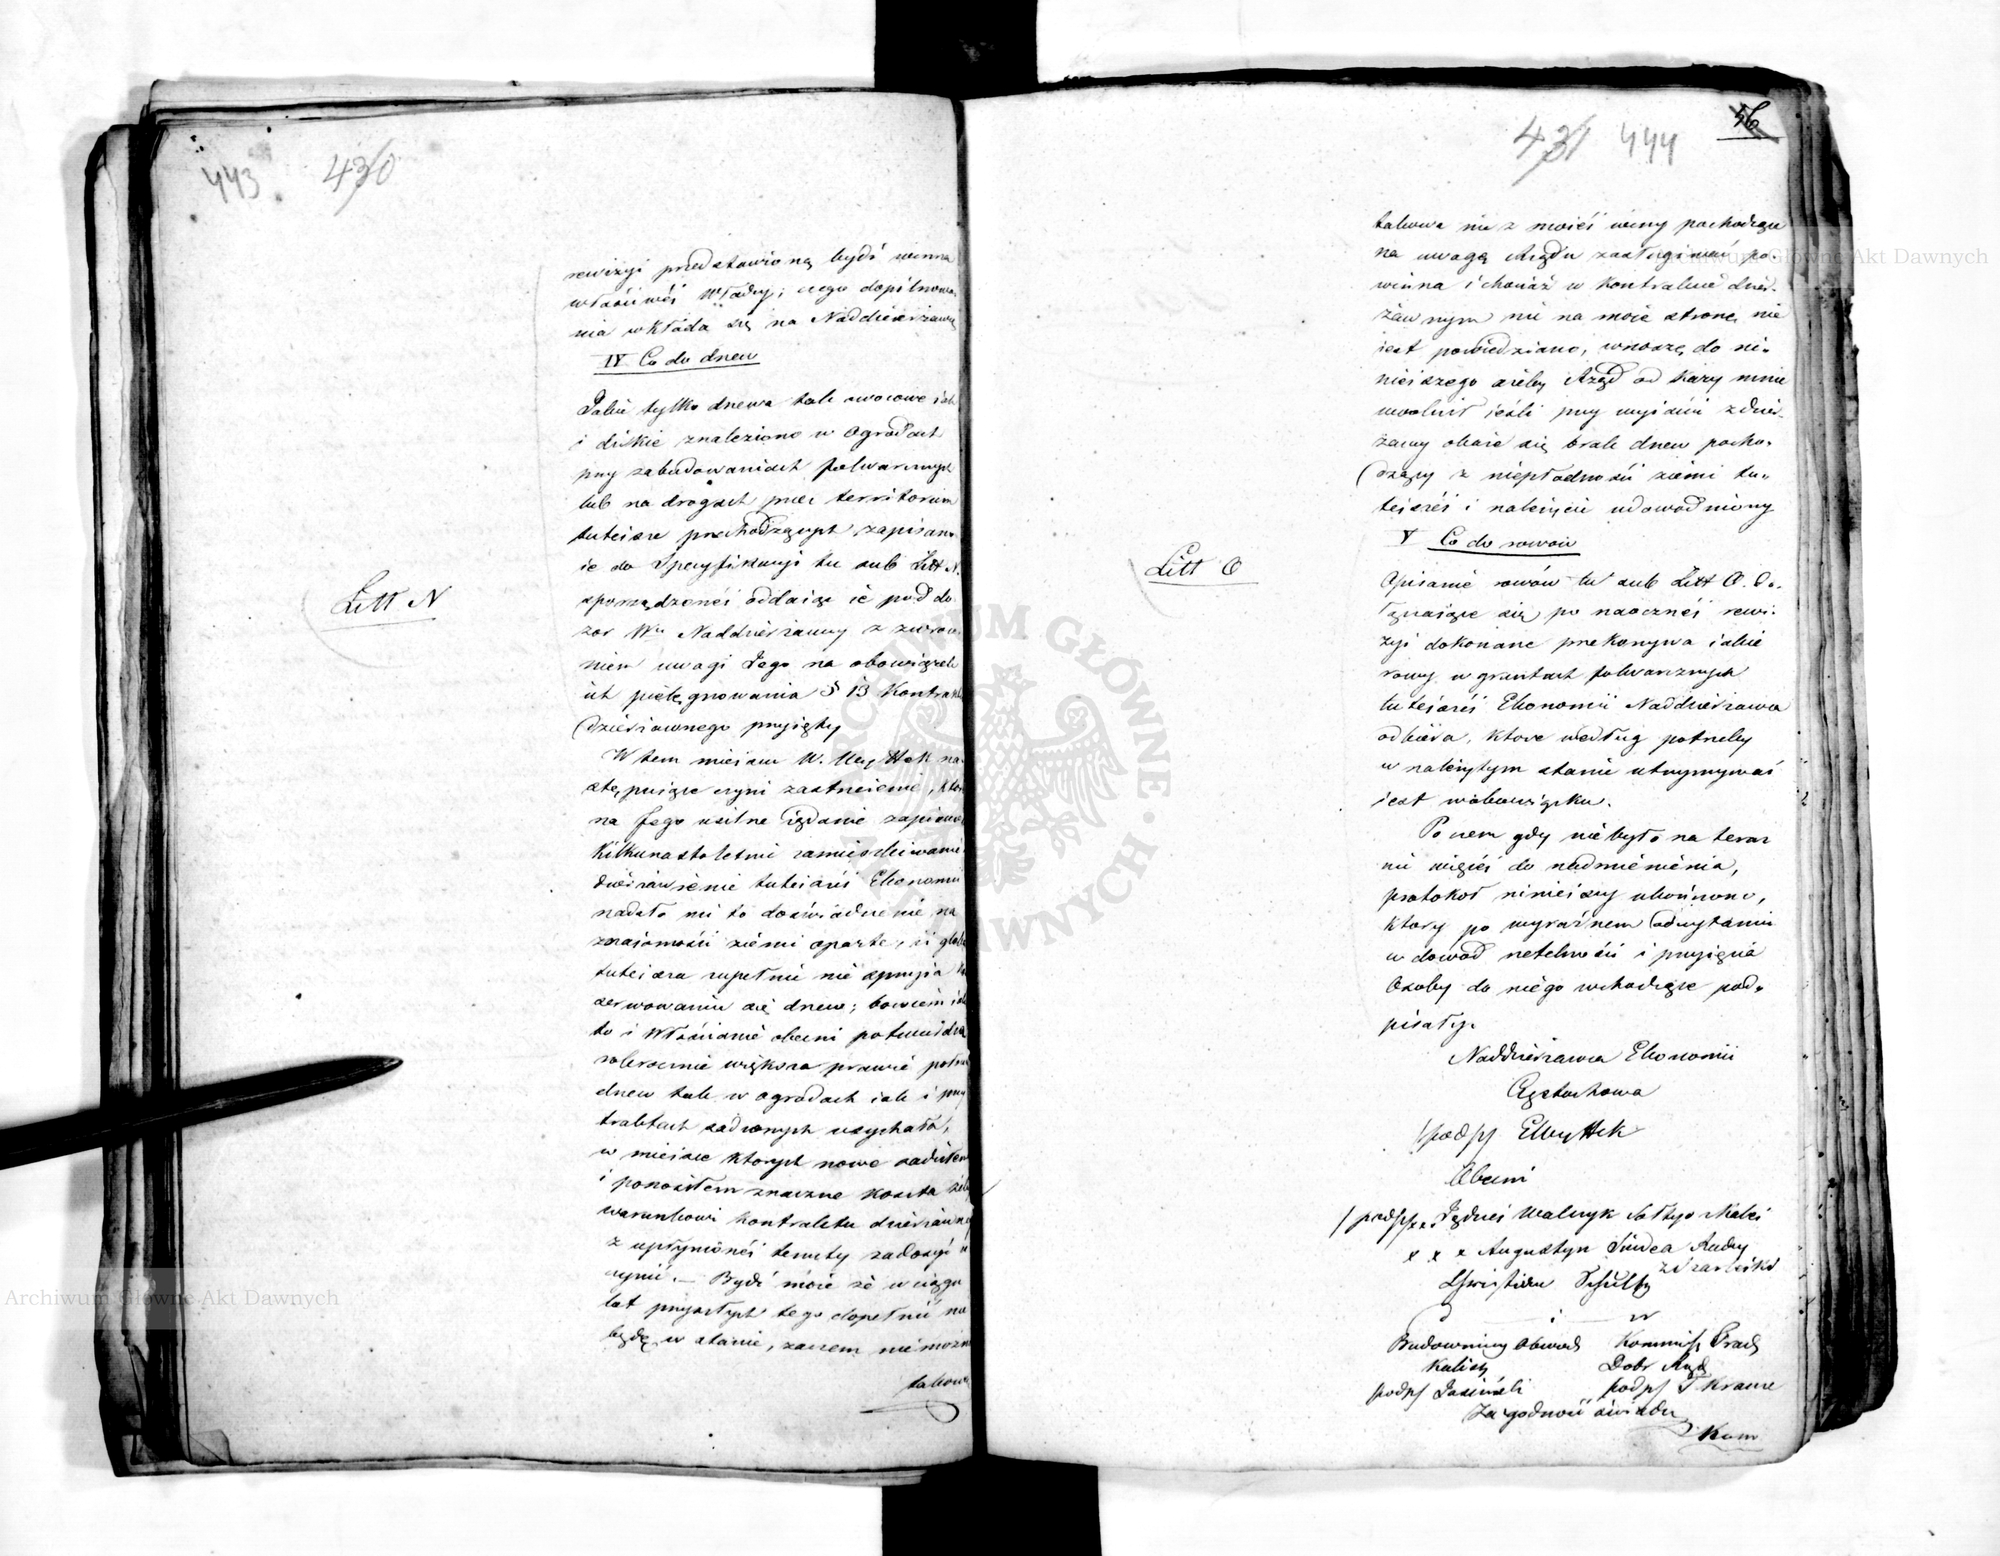 443 430
rewizyi przedstawioną bydź winna
właściwéj Władzy; czego dopilnowa-
nia wkłada się na Naddzierżawcę
IV Co do drzew
Jakie tylko drzewa tak owocowe iak
i dzikie znaleziono w Ogrodach
przy zabudowaniach folwarcznych
lub na drogach przez territorium
tuteisze przechodzących, zapisano
ie do Specyfikacyi tu sub Litt N.
sporządzonéi oddaiąc ie pod do-
zor Wu Naddzierżawcy z zwróce-
niem uwagi Jego na obowiązek
ich pielęgnowania § 13 Kontraktu
dzierżawnego przyięty
Litt N
W tem mieiscu W. na-
stępuiące czyni zastrzeżenie, które
na Jego usilne żądanie zapisano
Kilkunastoletnie zamieszkiwanie
dzierżawienie tuteiszéi Ekonomii
nadało mi to doświadczenie na
znaiomości ziemi oparte, iż gleba
tuteisza zupełnie nie sprzyia
serwowaniu się drzew; bowiem iak
to i Włościanie obecni potwierdzą
corocznie większa prawie połowa
drzew tak w ogrodach iak i przy
traktach sadzonych usychała,
w mieisce których nowe sadziłem
i ponosiłem znaczne koszta żeby
warunkowi kontraktu dzierżawnego
z upłynionéi tenuty zadosyć u-
czynić. — Bydź może że w ciągu
lat przyszłych tego dopełnić nie
będę w stanie, zaczem niemożność
takowa
56
431 444
takowa nie z moiéi winy pochodząca
na uwagę Rządu zasługiwać po-
winna i chociaż w kontrakcie dzier-
żawnym nic na moie stronę nie
iest powiedziano, wnoszę do ni-
nieiszego ażeby Rząd od kary mnie
uwolnił ieśli przy wyiściu z dzier-
żawy okaże się brak drzew pocho-
dzący z niepłodności ziemi tu-
teiszéi i należycie udowodniony
V Co do rowów
Litt O
Opisanie rowów tu sub Litt O. do-
łączaiące się po naocznéi rewi-
zyi dokonane przekonywa iakie
rowy w gruntach folwarcznych
tuteiszéi Ekonomii Naddzierżawca
odbiera, które według potrzeby
w należytym stanie utrzymywać
iest w obowiązku.
Poczem gdy nie było na teraz
nic więcéi do nadmienienia,
protokół ninieiszy ukończono,
który po wyraźnem odczytaniu
w dowód rzetelności i przyięcia
Osoby do niego wchodzące pod-
pisały.
Naddzierżawca Ekonomii
Częstochowa
/podp/
Obecni
/podp/ x x x Jędrzéi Walczyk Sołtys
x x x Augustyn
Christian Schultz
Budowniczy Obwodu Kommiss
Kalisk Dobr Rząd
/podp/ Jasiński /podp/ T Krause
Za zgodność świadczę
Kom
Archiwum Główne Akt Dawnych
Archiwum Główne Akt Dawnych
ARCHIWUM GŁÓWNE AKT DAWNYCH